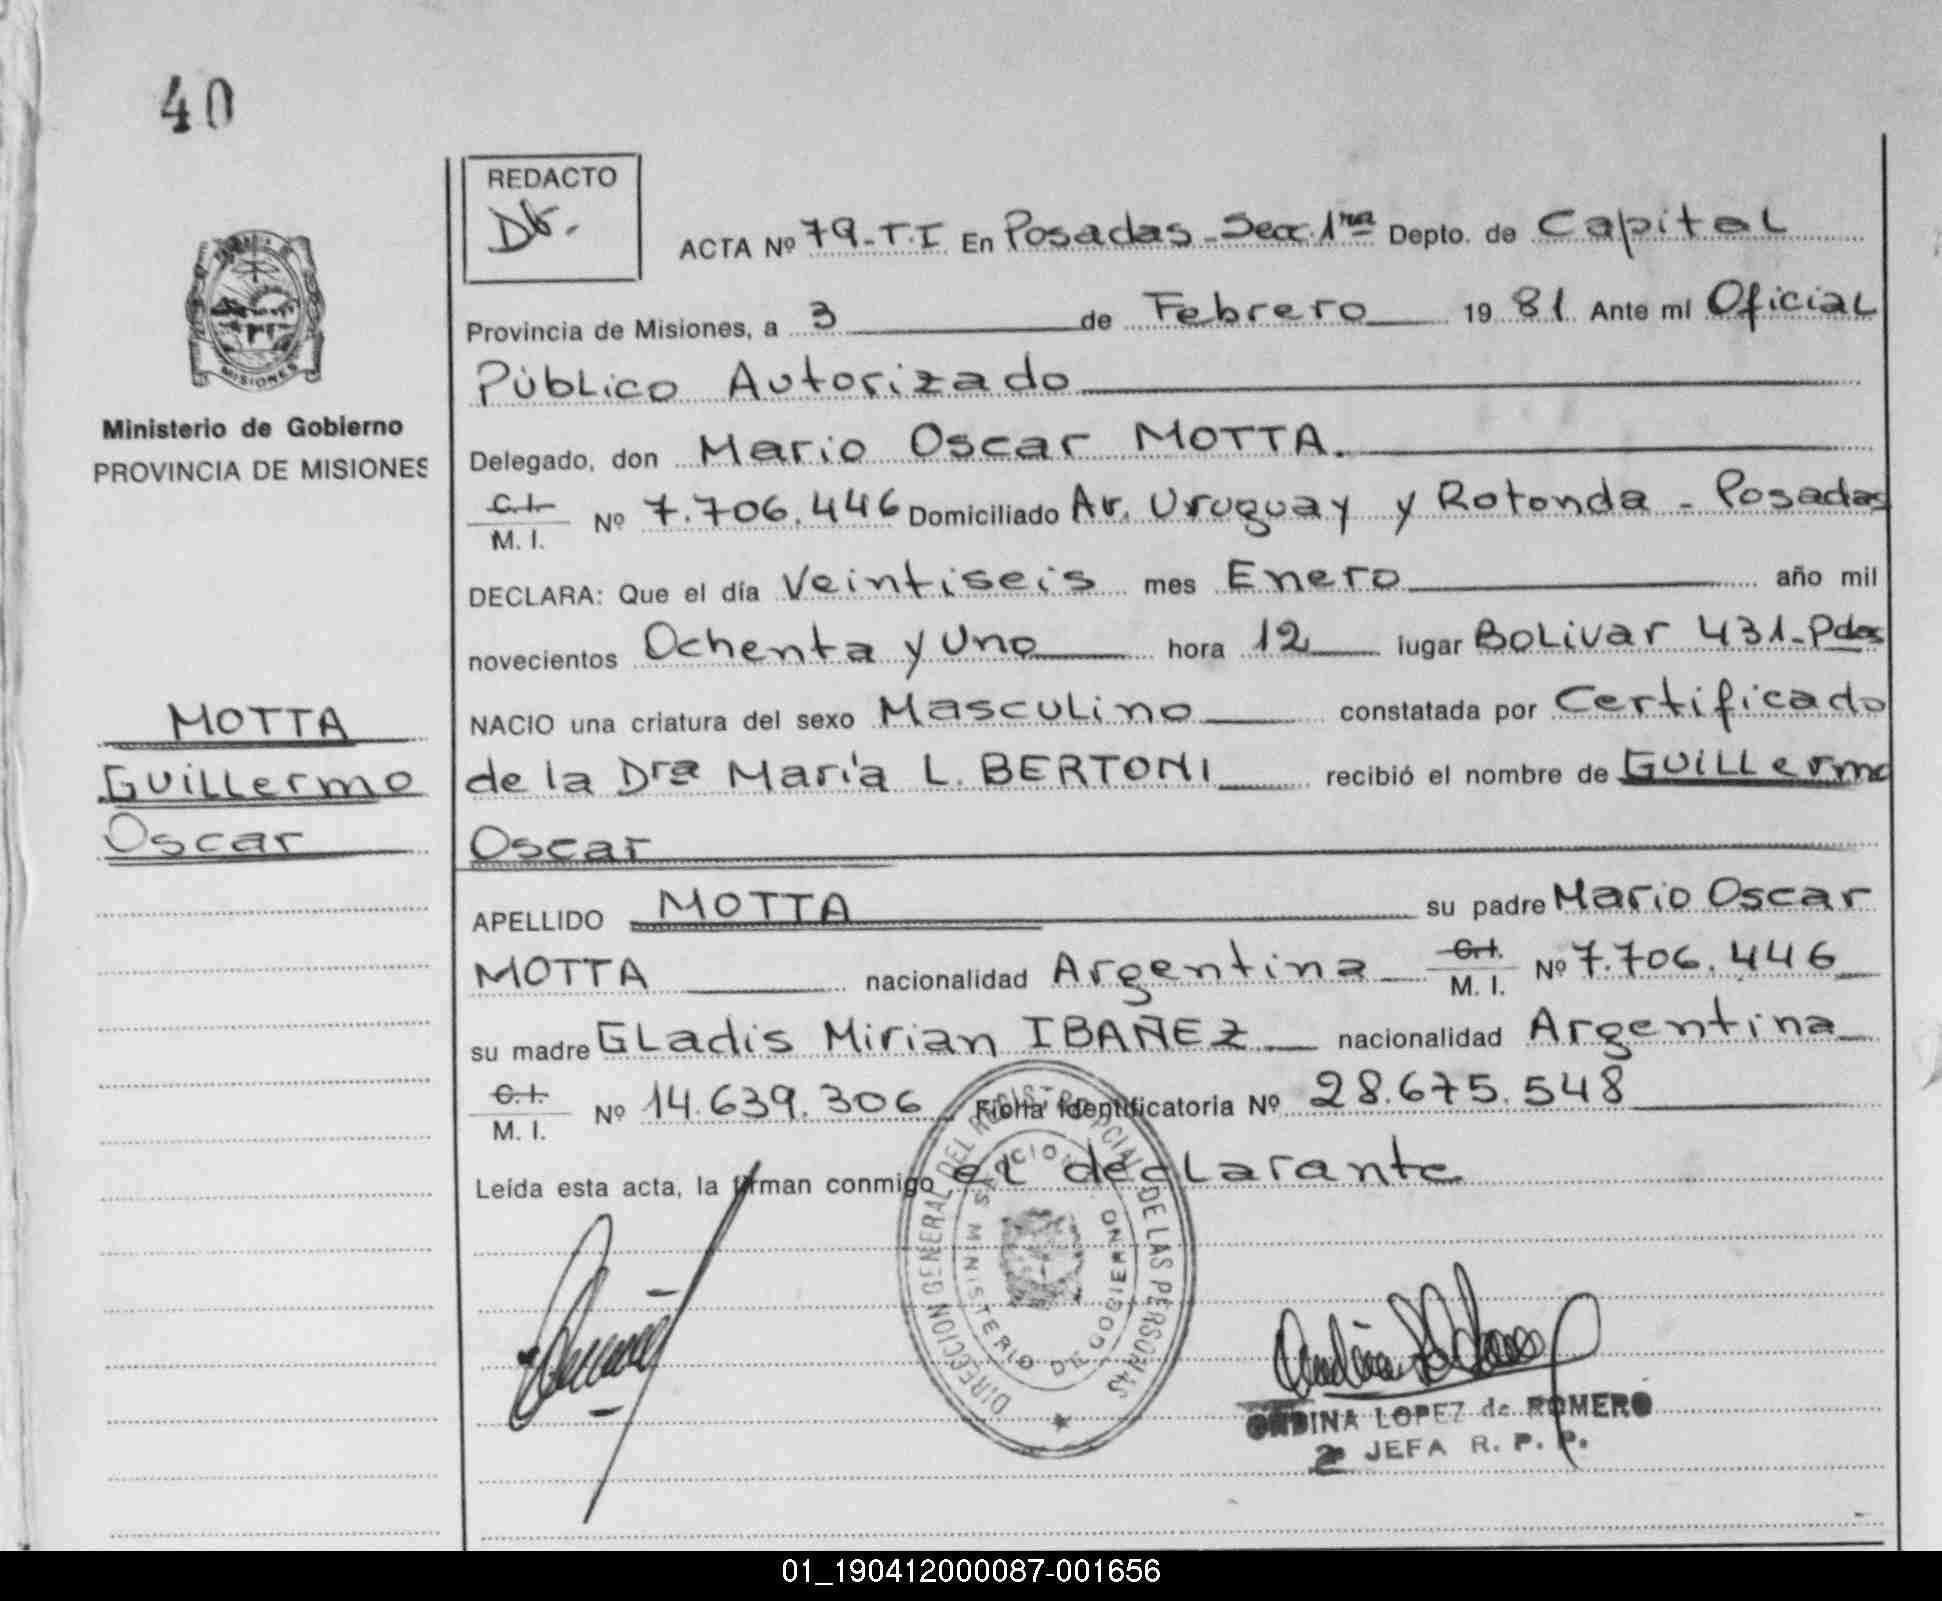 40
REDACTO
ACTA Nº 79-T.I En Posadas-Secc.1ra Depto. de Capital
Provincia de Misiones, a 3 de Febrero 1981. Ante mí Oficial
Público Autorizado
Ministerio de Gobierno
PROVINCIA DE MISIONES
MISIONES
Delegado, don Mario Oscar MOTTA.
C.I.
M. I. Nº 7.706.446 Domiciliado Av. Uruguay y Rotonda - Posadas
DECLARA: Que el día Veintiseis mes Enero año mil
novecientos Ochenta y Uno hora 12 lugar Bolivar 431-Pdas
MOTTA
Guillermo
Oscar
NACIO una criatura del sexo Masculino constatada por Certificado
de la Dra María L. BERTONI recibió el nombre de Guillermo
Oscar
APELLIDO MOTTA su padre Mario Oscar
MOTTA nacionalidad Argentina C.I. M. I. Nº 7.706.446
su madre Gladis Mirian IBAÑEZ nacionalidad Argentina
C.I.
M. I. Nº 14.639.306 Ficha identificatoria Nº 28.675.548
Leída esta acta, la firman conmigo el declarante
DIRECCION GENERAL DEL REGISTRO PCIAL. DE LAS PERSONAS
MINISTERIO DE GOBIERNO
ONDINA LOPEZ de ROMERO
2 JEFA R. P. P.
01_190412000087-001656